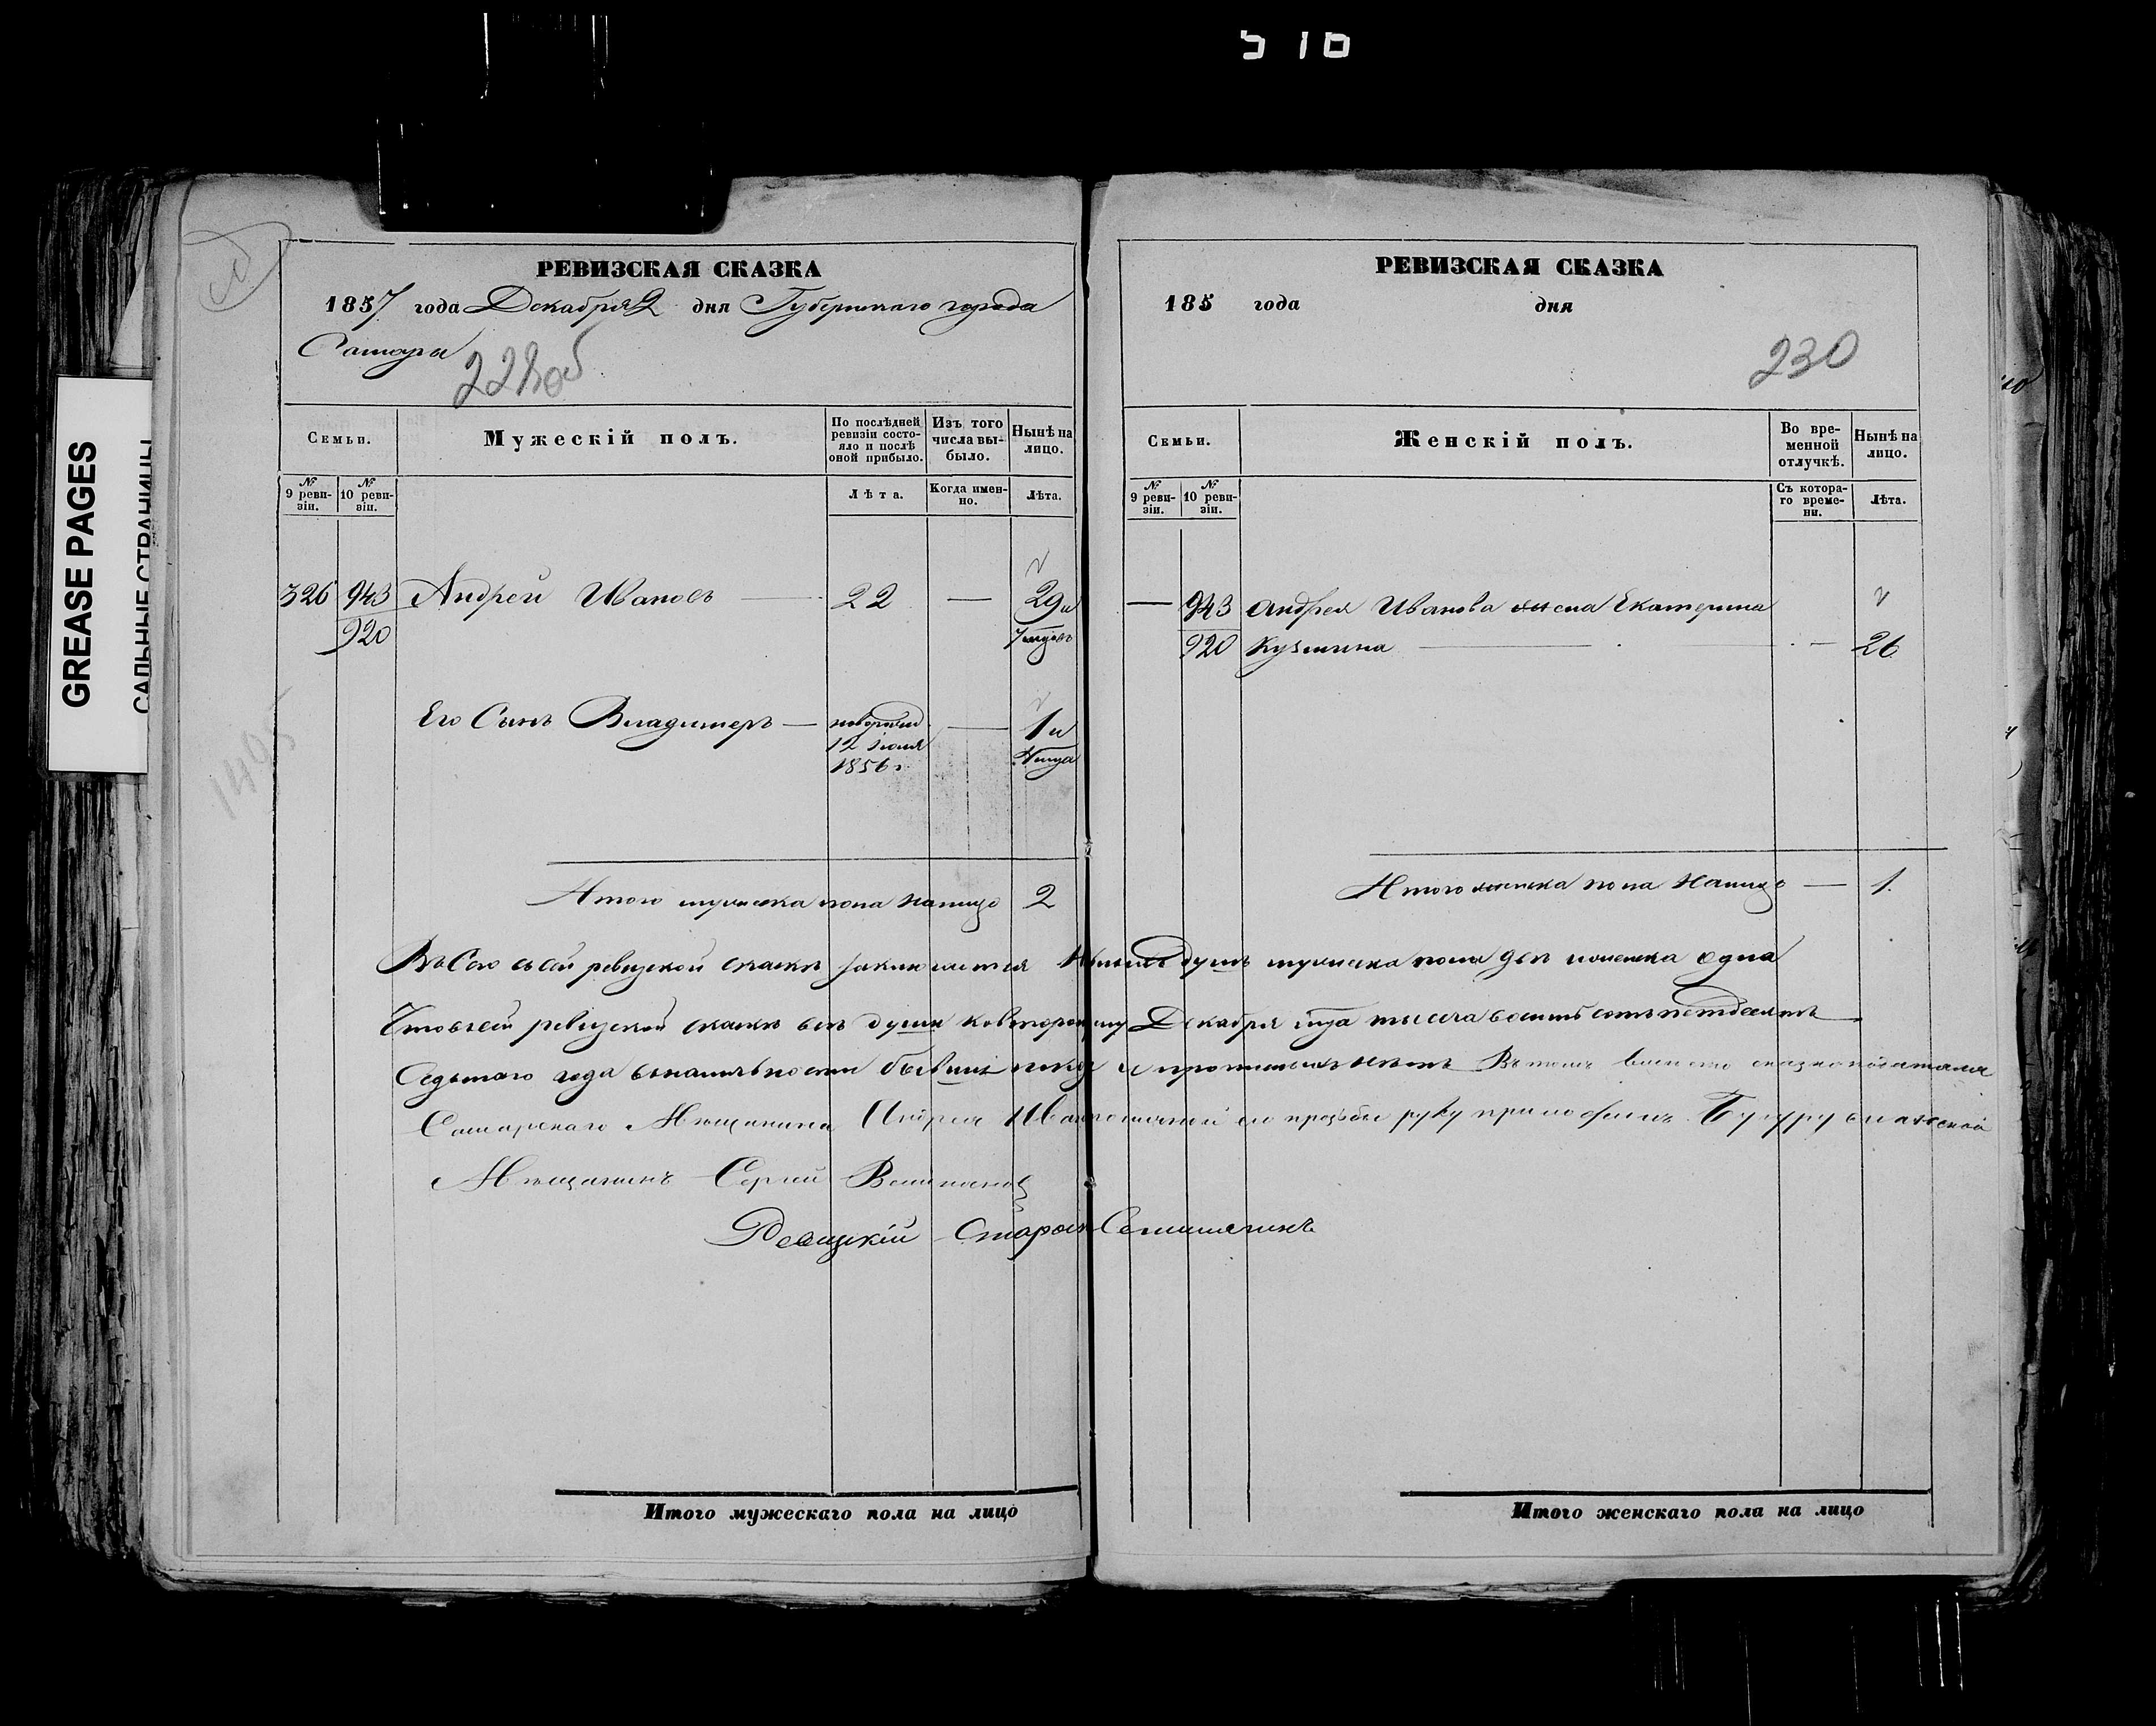 310
GREASE PAGES
САЛЬНЫЕ СТРАНИЦЫ
РЕВИЗСКАЯ СКАЗКА
1857 года Декабря 2 дня Губернскаго города
Самары
229об
Семьи.
Мужескій полъ.
По послѣдней ревизіи состо-
яло и послѣ
оной прибыло.
Изъ того
числа вы-
было.
Нынѣ на
лицо.
№
9 реви-
зіи.
№
10 реви-
зіи.
Лѣта.
Когда имен-
но.
Лѣта.
326 943 Андрей Ивановъ 22 — 29 и
920
Его Сынъ Владимеръ — новорожд — 1 и
12 Июля
1856 г.
Итого мужеска пола налицо 2
РЕВИЗСКАЯ СКАЗКА
185 года дня
230
Семьи.
Женскій полъ.
Во вре-
менной
отлучкѣ.
Нынѣ на
лицо.
№
9 реви-
зіи.
№
10 реви-
зіи.
Съ котора-
го време-
ни.
Лѣта.
— 943 Андрея Иванова жена Екатерина
920 Кузмина — 26
Итого женска пола налицо — 1.
ревизской сказкѣ заключается душъ мужеска пола двѣ и женска одна
Что в сей ревизской сказкѣ всѣ души ко второму Декабря тысяча восемь сотъ пятдесятъ
Седьмаго года въ наличности бывшие
Самарскаго Мѣщанина Андрея Иванова личной его прозьбы руку приложилъ Бугурусланской
Мѣщанинъ Сергей
Староста
Итого мужескаго пола на лицо
Итого женскаго пола на лицо